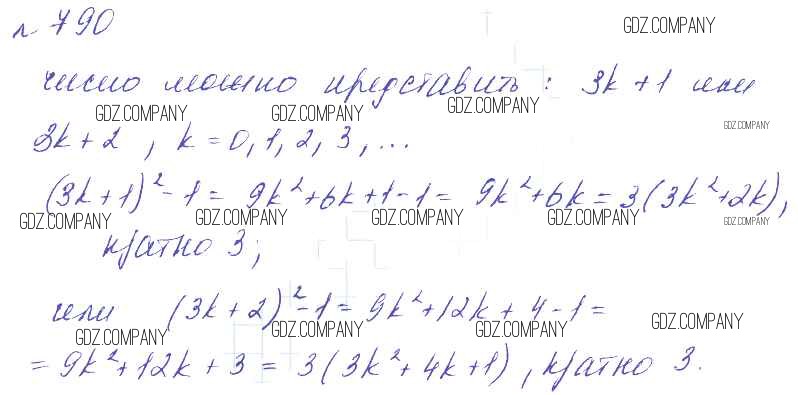 № 790
GDZ.COMPANY
число можно представить: 3k + 1 или
GDZ.COMPANY GDZ.COMPANY GDZ.COMPANY GDZ.COMPANY
3k + 2, k = 0, 1, 2, 3, ...
(3k + 1)² - 1 = 9k² + 6k + 1 - 1 = 9k² + 6k = 3(3k² + 2k),
GDZ.COMPANY GDZ.COMPANY GDZ.COMPANY GDZ.COMPANY GDZ.COMPANY
кратно 3;
или (3k + 2)² - 1 = 9k² + 12k + 4 - 1 =
GDZ.COMPANY GDZ.COMPANY GDZ.COMPANY GDZ.COMPANY
= 9k² + 12k + 3 = 3(3k² + 4k + 1), кратно 3.